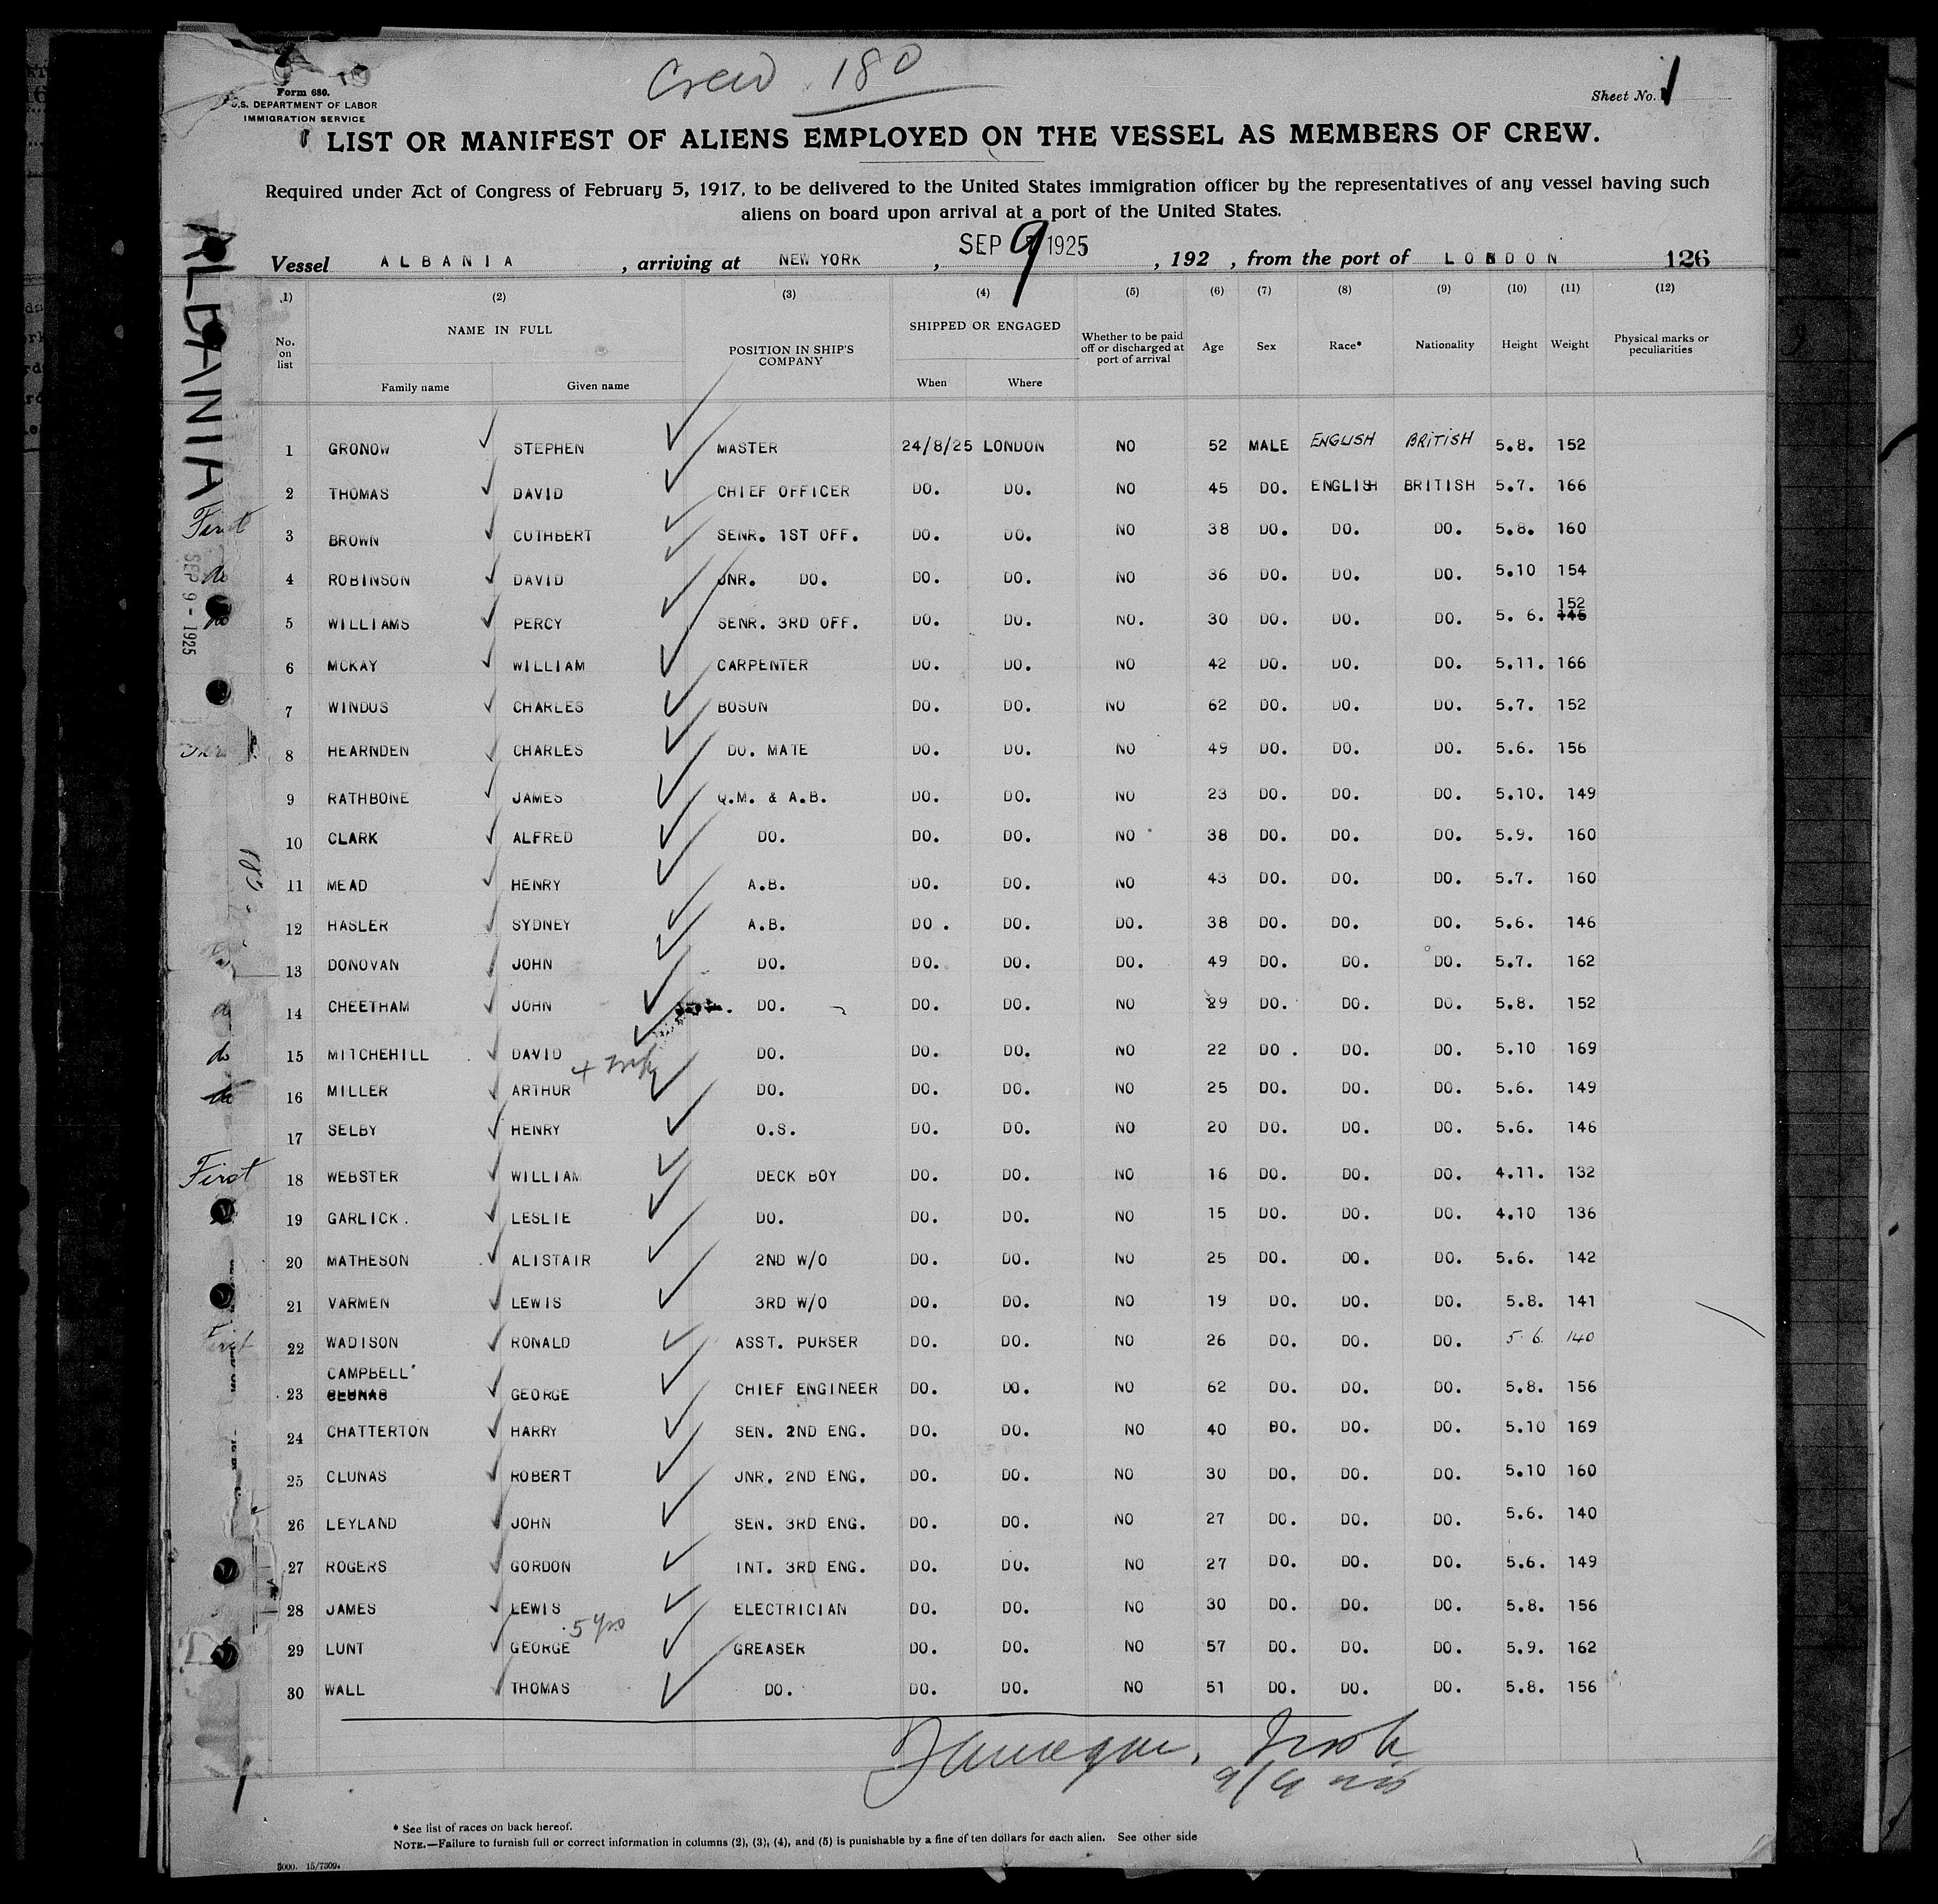 Crew 180
Form 680.
U.S. DEPARTMENT OF LABOR
IMMIGRATION SERVICE
Sheet No. 1
LIST OR MANIFEST OF ALIENS EMPLOYED ON THE VESSEL AS MEMBERS OF CREW.
Required under Act of Congress of February 5, 1917, to be delivered to the United States immigration officer by the representatives of any vessel having such
aliens on board upon arrival at a port of the United States.
Vessel ALBANIA, arriving at NEW YORK, SEP 9 1925, 192 , from the port of LONDON 126
ALBANIA
SEP 9 - 1925
(1) (2) (3) (4) (5) (6) (7) (8) (9) (10) (11) (12)
No. on list NAME IN FULL POSITION IN SHIP'S COMPANY SHIPPED OR ENGAGED Whether to be paid off or discharged at port of arrival Age Sex Race* Nationality Height Weight Physical marks or peculiarities
Family name Given name When Where
1 GRONOW STEPHEN MASTER 24/8/25 LONDON NO 52 MALE ENGLISH BRITISH 5.8. 152
2 THOMAS DAVID CHIEF OFFICER DO. DO. NO 45 DO. ENGLISH BRITISH 5.7. 166
First 3 BROWN CUTHBERT SENR. 1ST OFF. DO. DO. NO 38 DO. DO. DO. 5.8. 160
do 4 ROBINSON DAVID JNR. DO. DO. DO. NO 36 DO. DO. DO. 5.10 154
5 WILLIAMS PERCY SENR. 3RD OFF. DO. DO. NO. 30 DO. DO. DO. 5. 6. 152
6 MCKAY WILLIAM CARPENTER DO. DO. NO 42 DO. DO. DO. 5.11. 166
7 WINDUS CHARLES BOSUN DO. DO. NO 62 DO. DO. DO. 5.7. 152
8 HEARNDEN CHARLES DO. MATE DO. DO. NO 49 DO. DO. DO. 5.6. 156
9 RATHBONE JAMES Q.M. & A.B. DO. DO. NO 23 DO. DO. DO. 5.10. 149
10 CLARK ALFRED DO. DO. DO. NO 38 DO. DO. DO. 5.9. 160
11 MEAD HENRY A.B. DO. DO. NO 43 DO. DO. DO. 5.7. 160
12 HASLER SYDNEY A.B. DO. DO. DO. 38 DO. DO. DO. 5.6. 146
13 DONOVAN JOHN DO. DO. DO. DO. 49 DO. DO. DO. 5.7. 162
14 CHEETHAM JOHN DO. DO. DO. NO 29 DO. DO. DO. 5.8. 152
do 15 MITCHEHILL DAVID DO. DO. DO. NO 22 DO. DO. DO. 5.10 169
16 MILLER ARTHUR DO. DO. DO. NO 25 DO. DO. DO. 5.6. 149
17 SELBY HENRY O.S. DO. DO. NO 20 DO. DO. DO. 5.6. 146
First 18 WEBSTER WILLIAM DECK BOY DO. DO. NO 16 DO. DO. DO. 4.11. 132
19 GARLICK. LESLIE DO. DO. DO. NO 15 DO. DO. DO. 4.10 136
20 MATHESON ALISTAIR 2ND W/O DO. DO. NO 25 DO. DO. DO. 5.6. 142
21 VARMEN LEWIS 3RD W/O DO. DO. NO 19 DO. DO. DO. 5.8. 141
First 22 WADISON RONALD ASST. PURSER DO. DO. NO 26 DO. DO. DO. 5 6. 140
CAMPBELL
23 CLUNAS GEORGE CHIEF ENGINEER DO. DO. NO 62 DO. DO. DO. 5.8. 156
24 CHATTERTON HARRY SEN. 2ND ENG. DO. DO. NO 40 DO. DO. DO. 5.10 169
25 CLUNAS ROBERT JNR. 2ND ENG. DO. DO. NO 30 DO. DO. DO. 5.10 160
26 LEYLAND JOHN SEN. 3RD ENG. DO. DO. NO 27 DO. DO. DO. 5.6. 140
27 ROGERS GORDON INT. 3RD ENG. DO. DO. NO 27 DO. DO. DO. 5.6. 149
28 JAMES LEWIS ELECTRICIAN DO. DO. NO 30 DO. DO. DO. 5.8. 156
5 yrs
29 LUNT GEORGE GREASER DO. DO. NO 57 DO. DO. DO. 5.9. 162
30 WALL THOMAS DO. DO. DO. NO 51 DO. DO. DO. 5.8. 156
* See list of races on back hereof.
NOTE.—Failure to furnish full or correct information in columns (2), (3), (4), and (5) is punishable by a fine of ten dollars for each alien. See other side
5000. 15/7309.